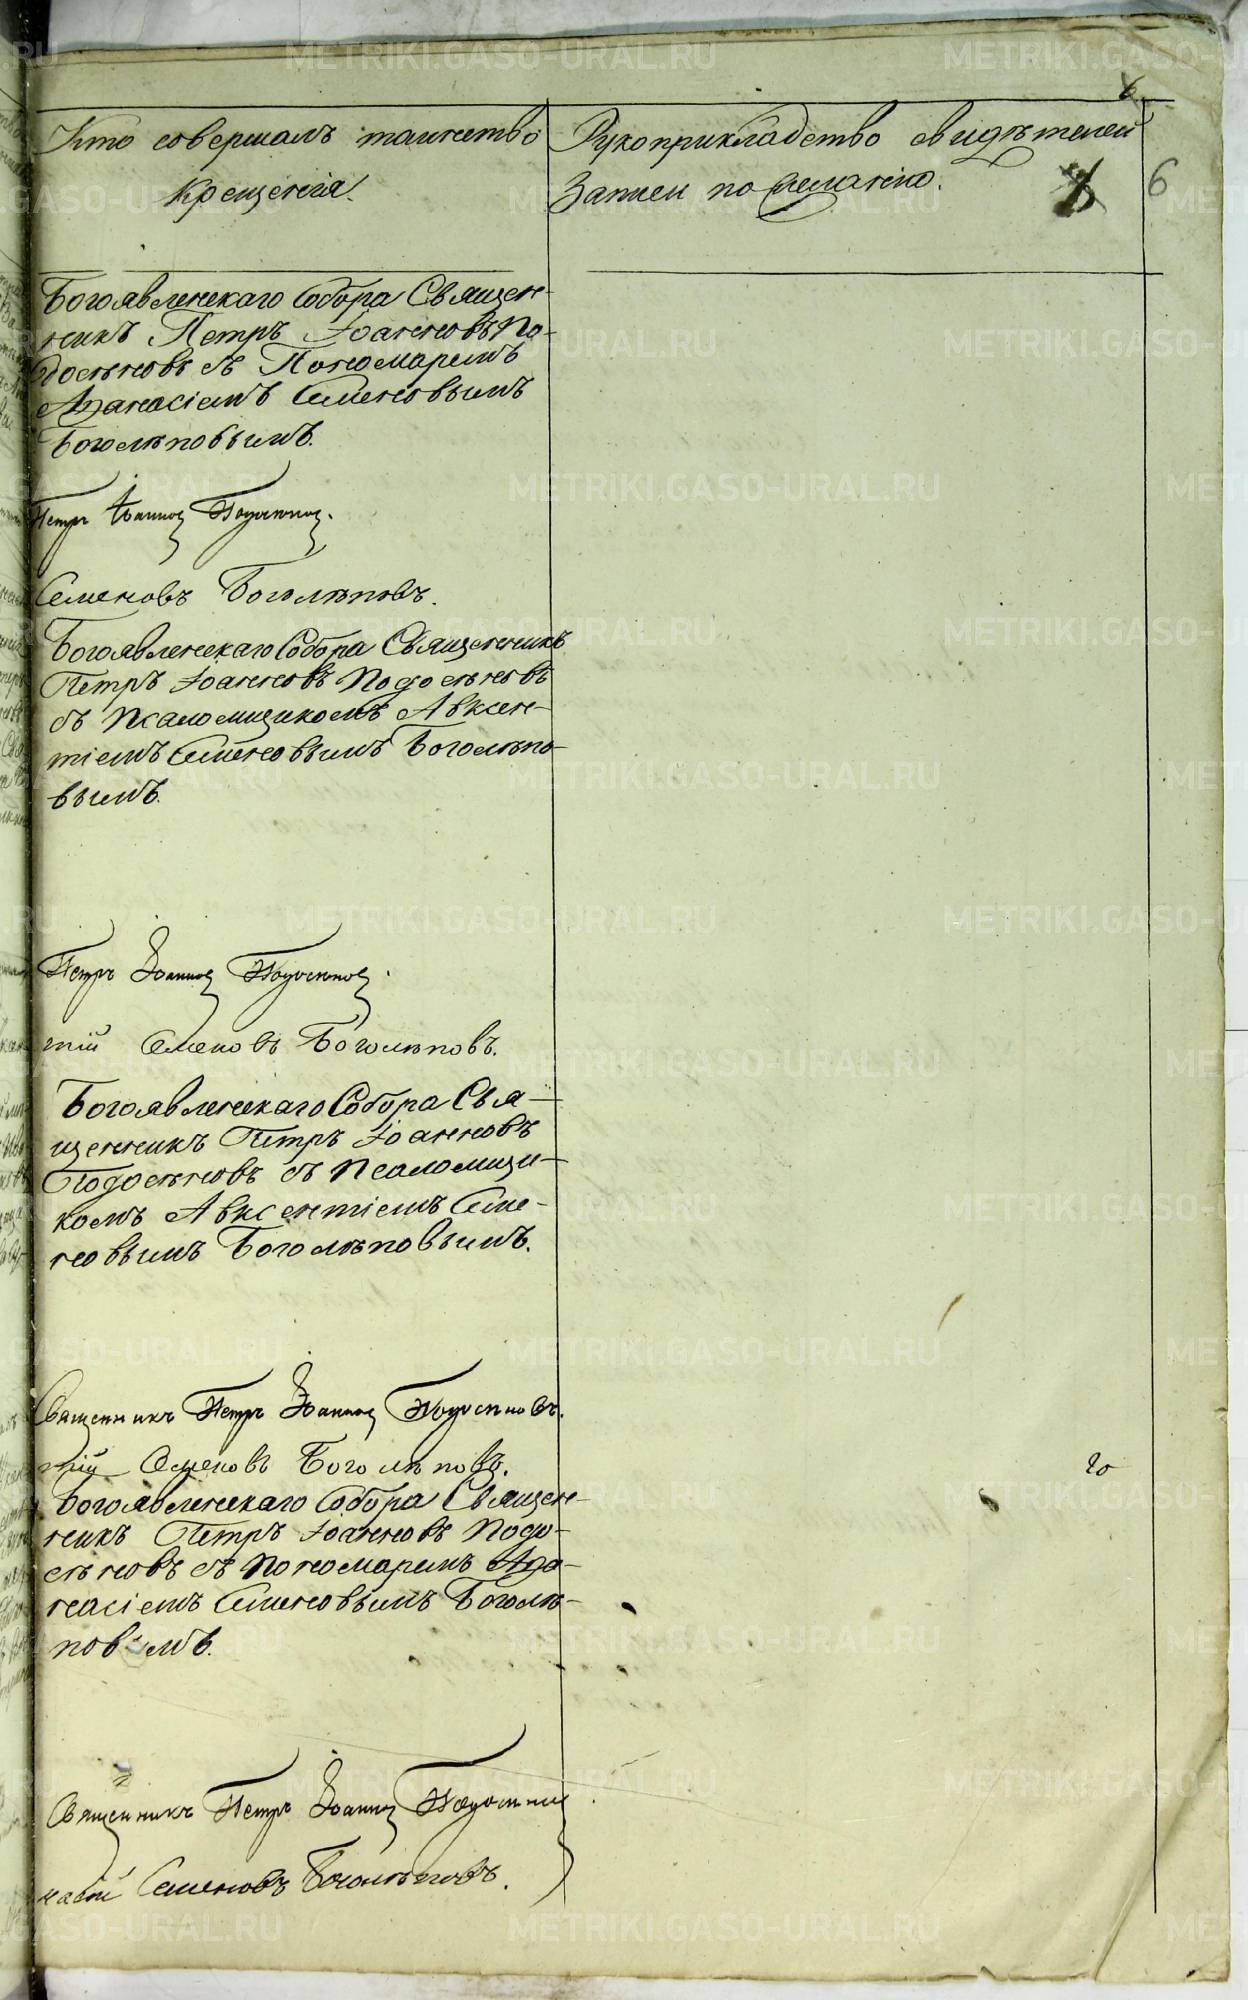 6
Кто совершалъ таинство
Крещенія.
Рукоприкладство свидѣтелей
Записи по желанію.
6
Богоявленскаго Собора Священ-
никъ Петръ Іоанновъ По-
досеновъ съ Пономаремъ
Аѳанасіемъ Семеновымъ
Боголѣповымъ.
Петръ Іоанновъ Подосеновъ.
Семеновъ Боголѣповъ.
Богоявленскаго Собора Священникъ
Петръ Іоанновъ Подосеновъ
съ Псаломщикомъ Авксен-
тіемъ Семеновымъ Боголѣпо-
вымъ.
Петръ Іоанновъ Подосеновъ.
тій Семеновъ Боголѣповъ.
Богоявленскаго Собора Свя-
щенникъ Петръ Іоанновъ
Подосеновъ съ Псаломщи-
комъ Авксентіемъ Семе-
новымъ Боголѣповымъ.
Священникъ Петръ Іоанновъ Подосеновъ.
тій Семеновъ Боголѣповъ.
Богоявленскаго Собора Священ-
никъ Петръ Іоанновъ Подо-
сеновъ съ Пономаремъ Афа-
насіемъ Семеновымъ Боголѣ-
повымъ.
Священникъ Петръ Іоанновъ Подосеновъ.
насій Семеновъ Боголѣповъ.
METRIKI.GASO-URAL.RU